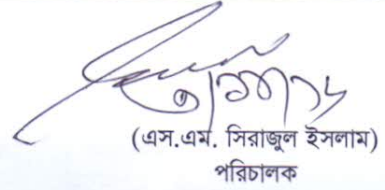 (এস.এম. সিরাজুল ইসলাম)
পরিচালক